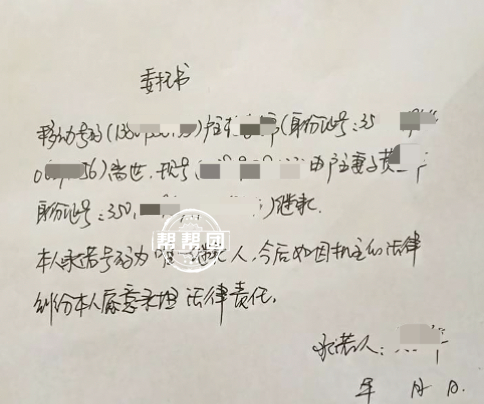 委托书
移动号码(138)户主(身份证号:35
06 56)离世.现号()由户主妻子黄
身份证号:350,)继承.
本人承诺号码为唯一继承人,今后如因机主的法律
纠纷本人愿意承担法律责任.
承诺人:
年 月 日.
帮帮团